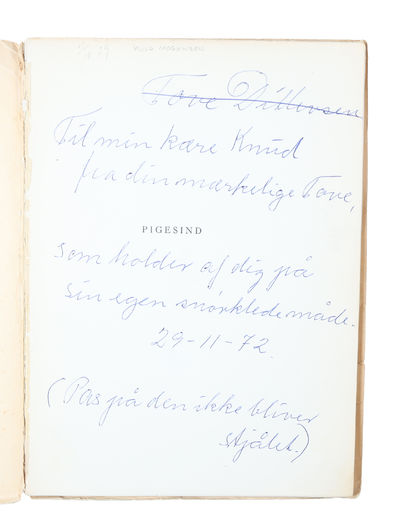 Tove Ditlevsen
Til min kære Knud
fra din mærkelige Tove,
PIGESIND
som holder af dig på
sin egen snørklede måde.
29-11-72.
(Pas på den ikke bliver
stjålet.)